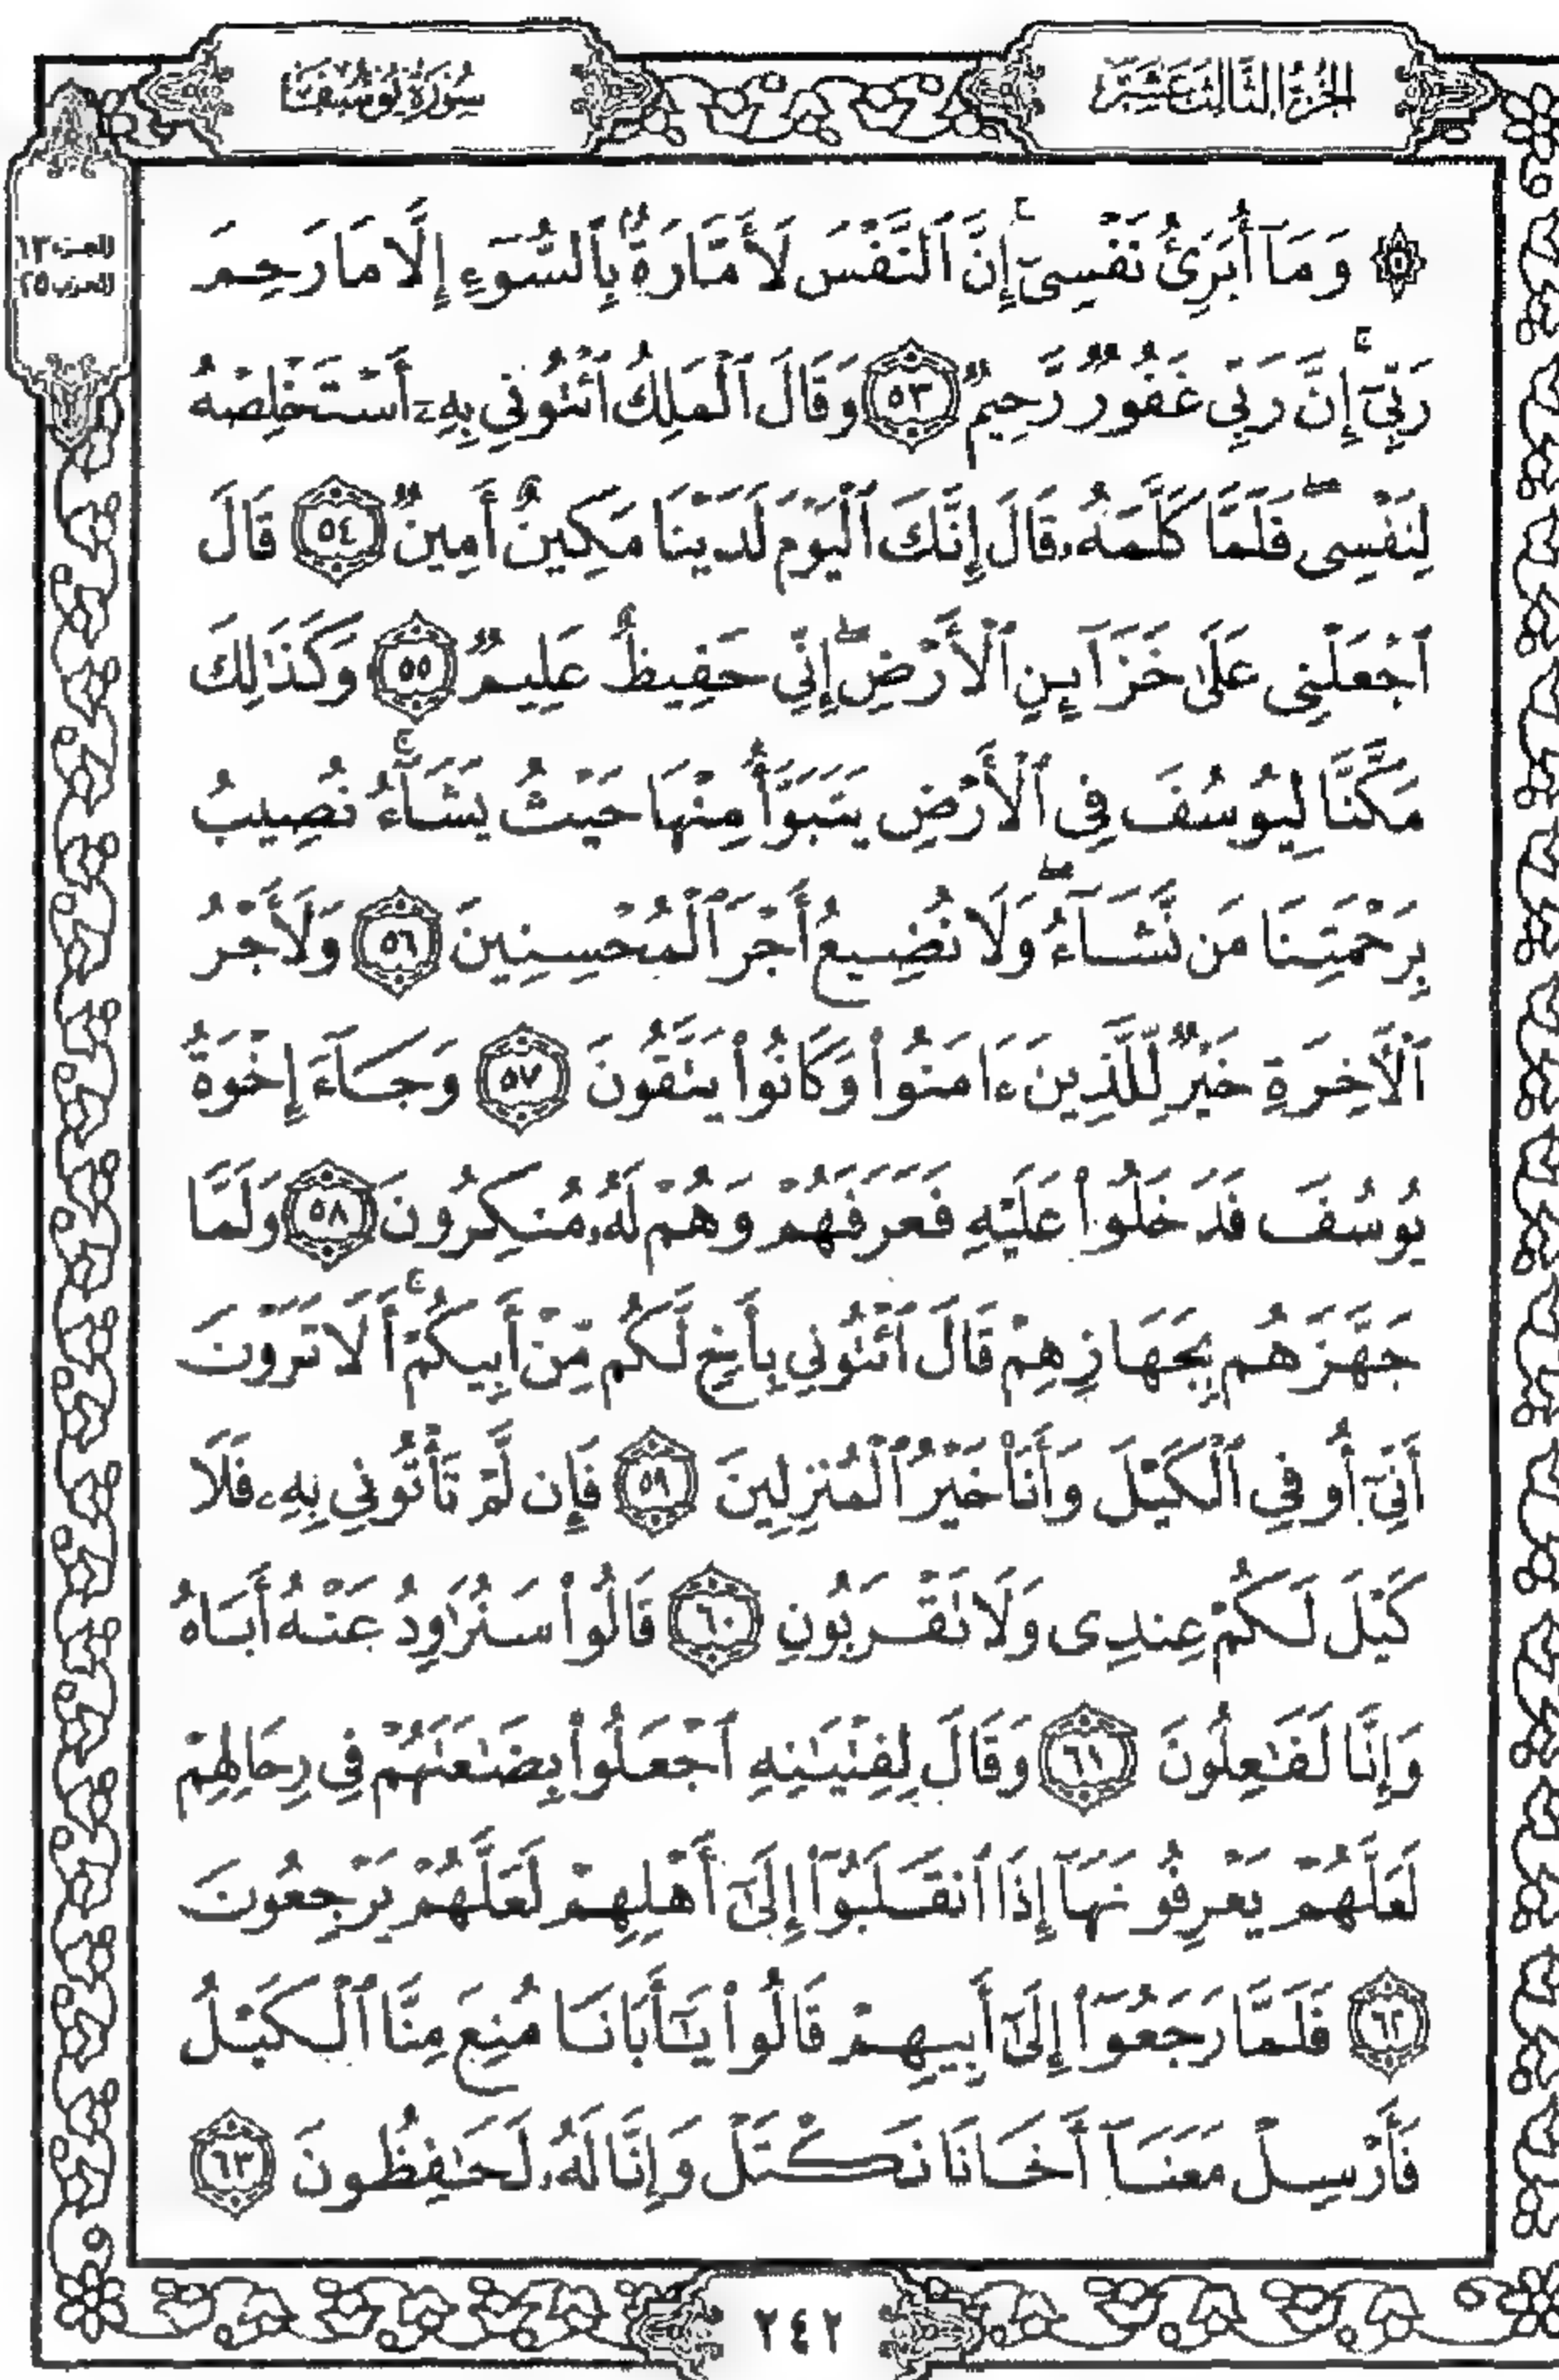 الجزء الثالث عشر
سورة يوسف
الجزء ١٣
الحزب ٢٥
۞ وَمَآ أُبَرِّئُ نَفْسِىٓ ۚ إِنَّ ٱلنَّفْسَ لَأَمَّارَةٌۢ بِٱلسُّوٓءِ إِلَّا مَا رَحِمَ
رَبِّىٓ ۚ إِنَّ رَبِّى غَفُورٌ رَّحِيمٌ ٥٣ وَقَالَ ٱلْمَلِكُ ٱئْتُونِى بِهِۦٓ أَسْتَخْلِصْهُ
لِنَفْسِى ۖ فَلَمَّا كَلَّمَهُۥ قَالَ إِنَّكَ ٱلْيَوْمَ لَدَيْنَا مَكِينٌ أَمِينٌ ٥٤ قَالَ
ٱجْعَلْنِى عَلَىٰ خَزَآئِنِ ٱلْأَرْضِ ۖ إِنِّى حَفِيظٌ عَلِيمٌ ٥٥ وَكَذَٰلِكَ
مَكَّنَّا لِيُوسُفَ فِى ٱلْأَرْضِ يَتَبَوَّأُ مِنْهَا حَيْثُ يَشَآءُ ۚ نُصِيبُ
بِرَحْمَتِنَا مَن نَّشَآءُ ۖ وَلَا نُضِيعُ أَجْرَ ٱلْمُحْسِنِينَ ٥٦ وَلَأَجْرُ
ٱلْأَخِرَةِ خَيْرٌ لِّلَّذِينَ ءَامَنُوا۟ وَكَانُوا۟ يَتَّقُونَ ٥٧ وَجَآءَ إِخْوَةُ
يُوسُفَ فَدَخَلُوا۟ عَلَيْهِ فَعَرَفَهُمْ وَهُمْ لَهُۥ مُنكِرُونَ ٥٨ وَلَمَّا
جَهَّزَهُم بِجَهَازِهِمْ قَالَ ٱئْتُونِى بِأَخٍ لَّكُم مِّنْ أَبِيكُمْ ۚ أَلَا تَرَوْنَ
أَنِّىٓ أُوفِى ٱلْكَيْلَ وَأَنَا۠ خَيْرُ ٱلْمُنزِلِينَ ٥٩ فَإِن لَّمْ تَأْتُونِى بِهِۦ فَلَا
كَيْلَ لَكُمْ عِندِى وَلَا تَقْرَبُونِ ٦٠ قَالُوا۟ سَنُرَٰوِدُ عَنْهُ أَبَاهُ
وَإِنَّا لَفَٰعِلُونَ ٦١ وَقَالَ لِفِتْيَٰنِهِ ٱجْعَلُوا۟ بِضَٰعَتَهُمْ فِى رِحَالِهِمْ
لَعَلَّهُمْ يَعْرِفُونَهَآ إِذَا ٱنقَلَبُوٓا۟ إِلَىٰٓ أَهْلِهِمْ لَعَلَّهُمْ يَرْجِعُونَ
٦٢ فَلَمَّا رَجَعُوٓا۟ إِلَىٰٓ أَبِيهِمْ قَالُوا۟ يَٰٓأَبَانَا مُنِعَ مِنَّا ٱلْكَيْلُ
فَأَرْسِلْ مَعَنَآ أَخَانَا نَكْتَلْ وَإِنَّا لَهُۥ لَحَٰفِظُونَ ٦٣
٢٤٢